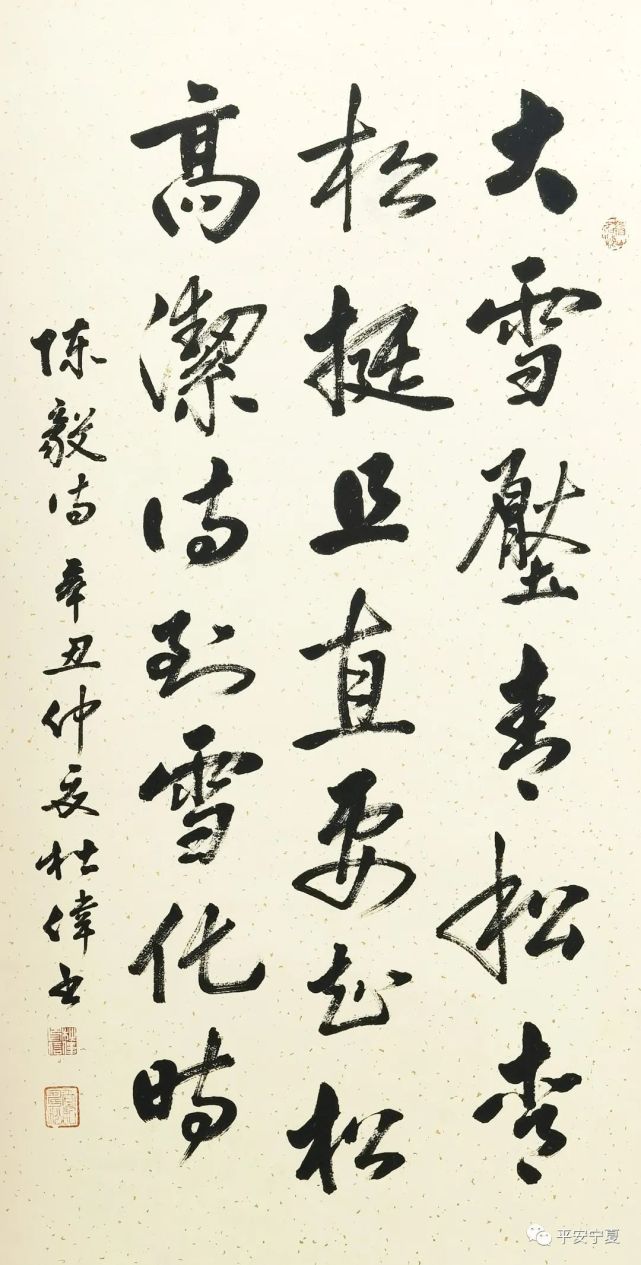 大雪壓青松青
松挺且直要知松
高潔待到雪化時
陈毅诗 辛丑仲夏杜偉书
平安宁夏